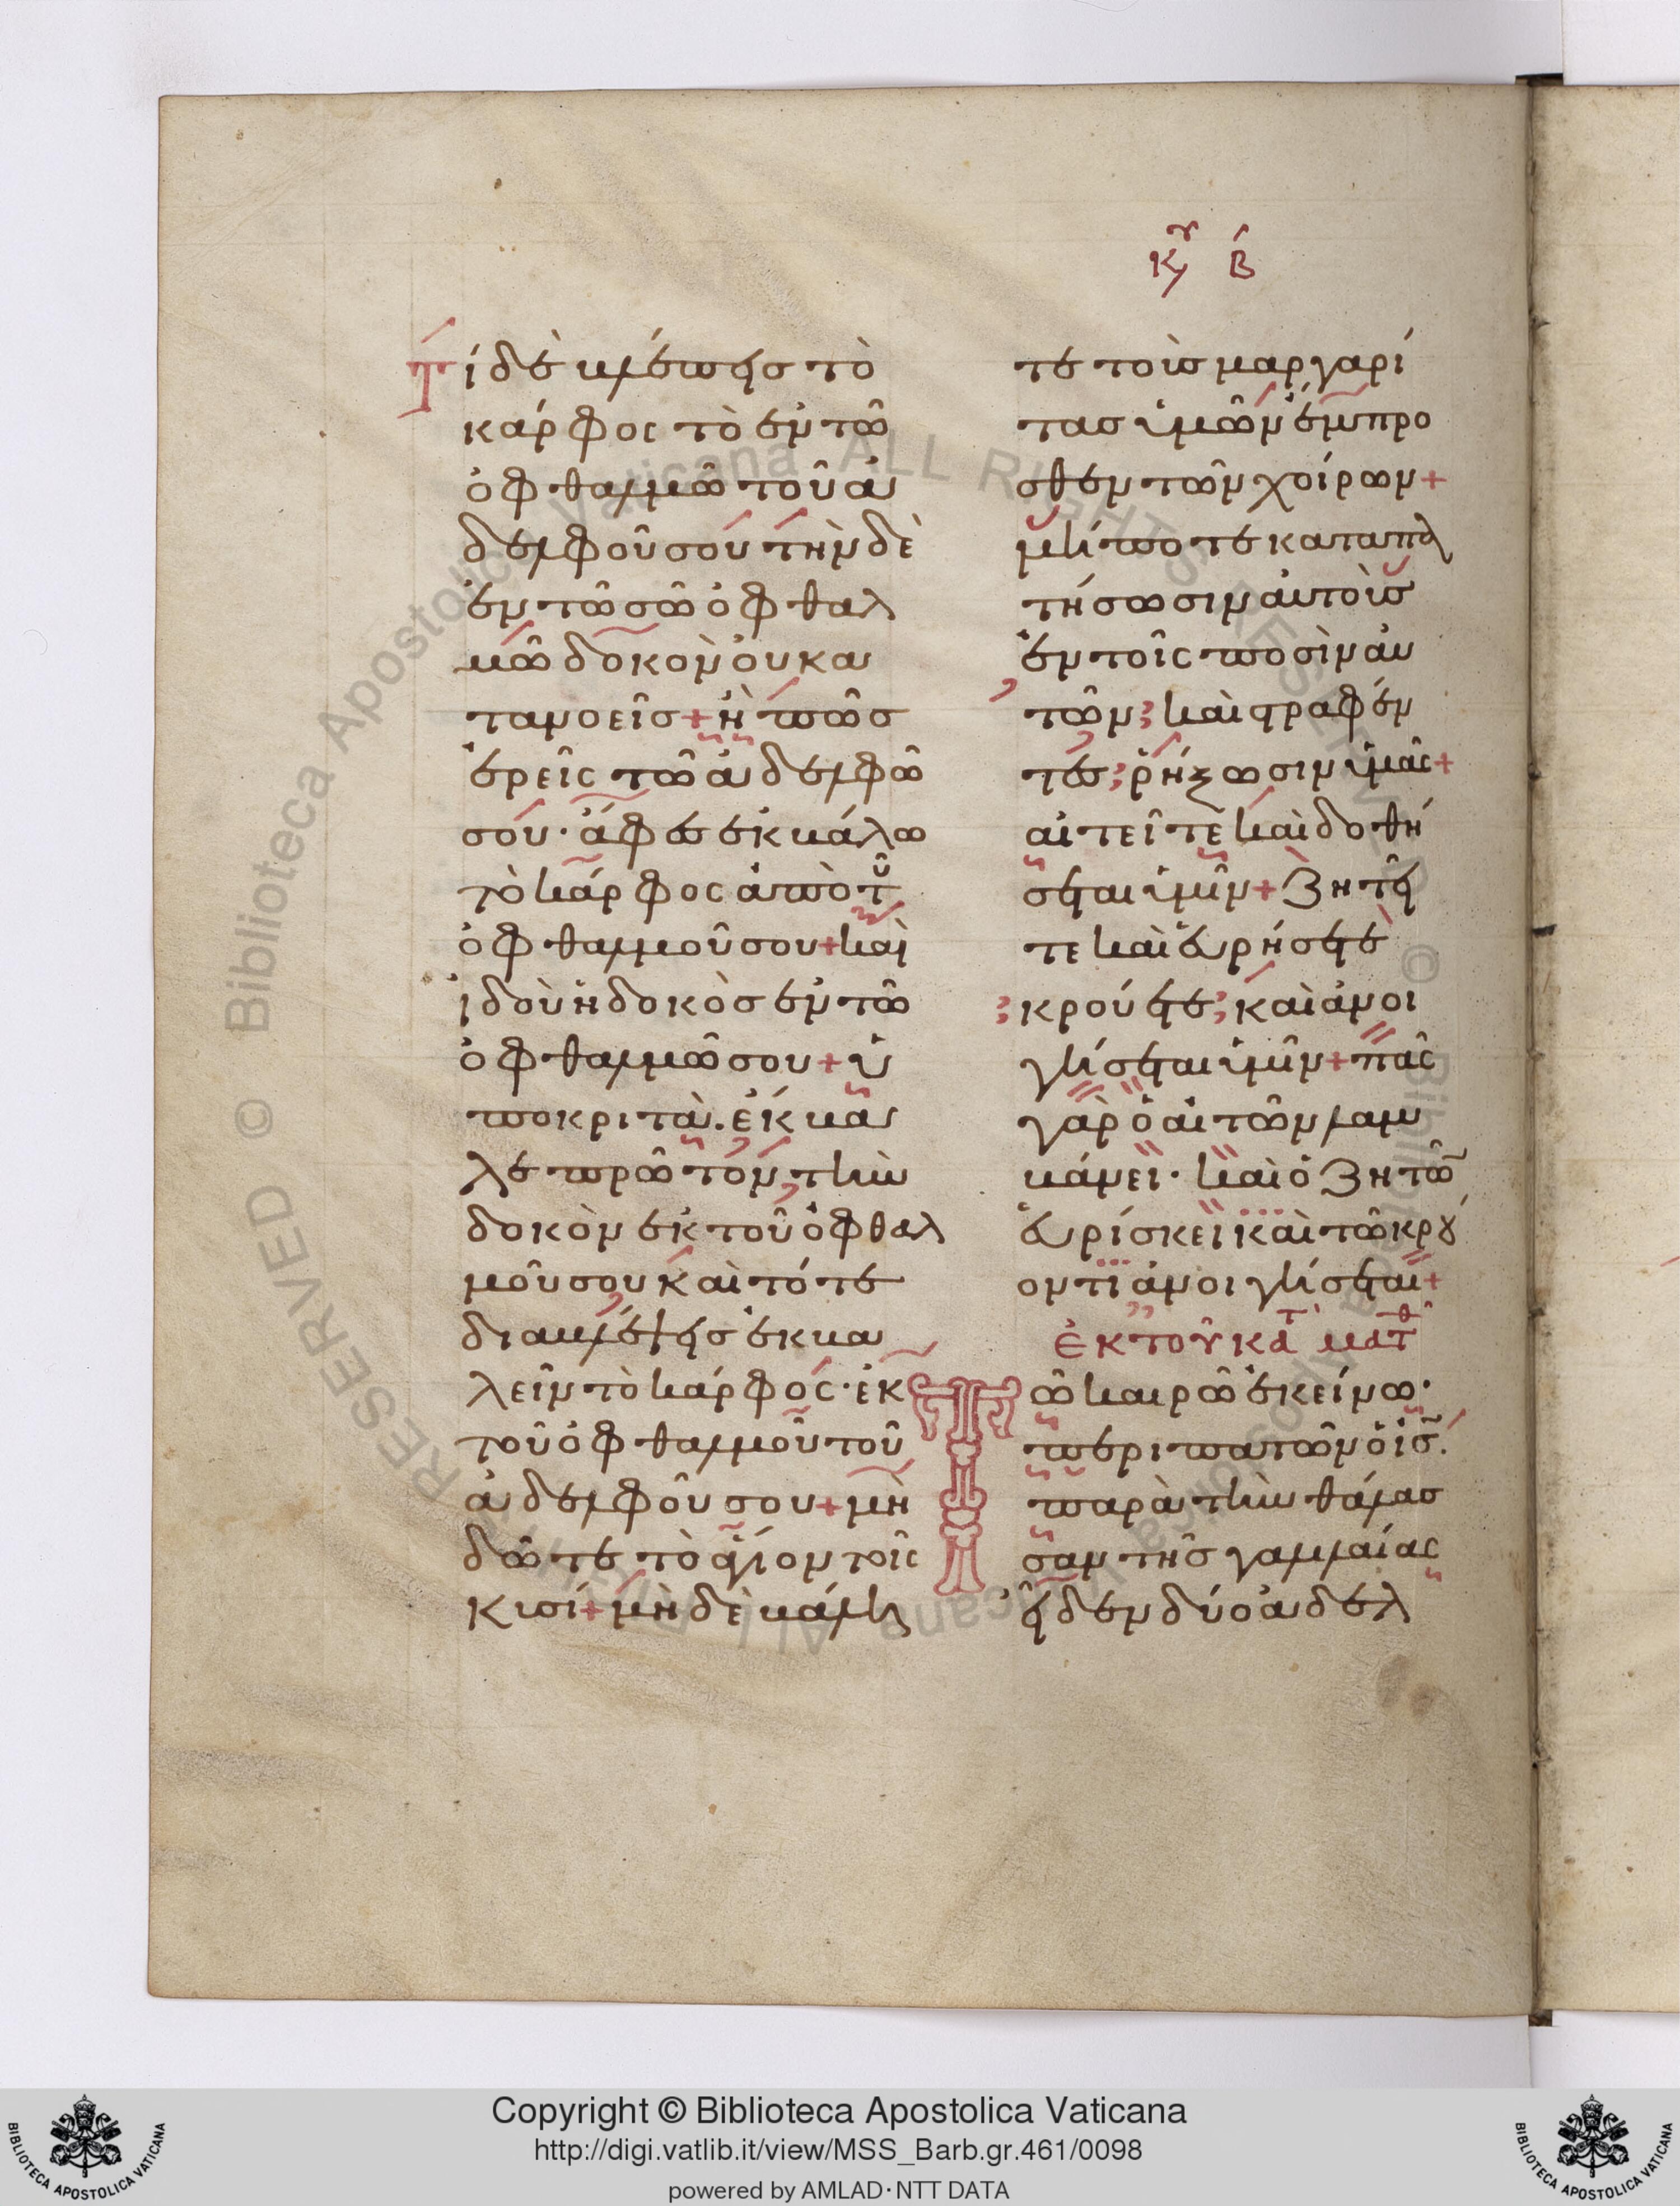 Κυ Β
Τί δὲ βλέπεις τὸ
κάρφος τὸ ἐν τῶ
ὀφθαλμῶ τοῦ ἀ
δελφοῦ σου τὴν δὲ
ἐν τῶ σῶ ὀφθαλ
μῶ δοκὸν οὐ κα
τανοεῖσ + ἢ πῶσ
ἐρεῖς τῶ ἀδελφῶ
σου· ἄφες ἐκβάλω
τὸ κάρφος ἀπὸ τοῦ
ὀφθαλμοῦ σου + καὶ
ἰδοὺ ἡ δοκὸσ ἐν τῶ
ὀφθαλμῶ σου + ὑ
ποκριτὰ. ἔκβα
λε πρῶτον τὴν
δοκὸν ἐκ τοῦ ὀφθαλ
μοῦ σου καὶ τότε
διαβλέψεισ ἐκβα
λεῖν τὸ κάρφος· ἐκ
τοῦ ὀφθαλμοῦ τοῦ
ἀδελφοῦ σου + μὴ
δῶτε τὸ ἅγιον τοῖς
κυσί + μὴ δὲ βάλη
τε τοὺσ μαργαρί
τασ ὑμῶν ἔμπρο
σθεν τῶν χοίρων +
μήποτε καταπα
τήσωσιν αὐτοὺσ
ἐν τοῖς ποσὶν αὐ
τῶν; καὶ στραφέν
τεσ; ῥήξωσιν ὑμᾶς +
αἰτεῖτε καὶ δοθή
σεται ὑμῖν + ζητεῖ
τε καὶ εὑρήσετε
κρούετε; καὶ ἀνοι
γήσεται ὑμῖν + πᾶς
γὰρ ὁ αἰτῶν λαμ
βάνει· καὶ ὁ ζητῶν
εὑρίσκει καὶ τῶ κρού
οντι ἀνοιγήσεται +
ἐκ τοῦ κατ ματθ
Τῶ καιρῶ ἐκείνω·
περιπατῶν ὁ ισ.
παρὰ τὴν θάλασ
σαν τῆσ γαλιλαίας
εἶδεν δύο ἀδελ
Copyright © Biblioteca Apostolica Vaticana
http://digi.vatlib.it/view/MSS_Barb.gr.461/0098
powered by AMLAD·NTT DATA